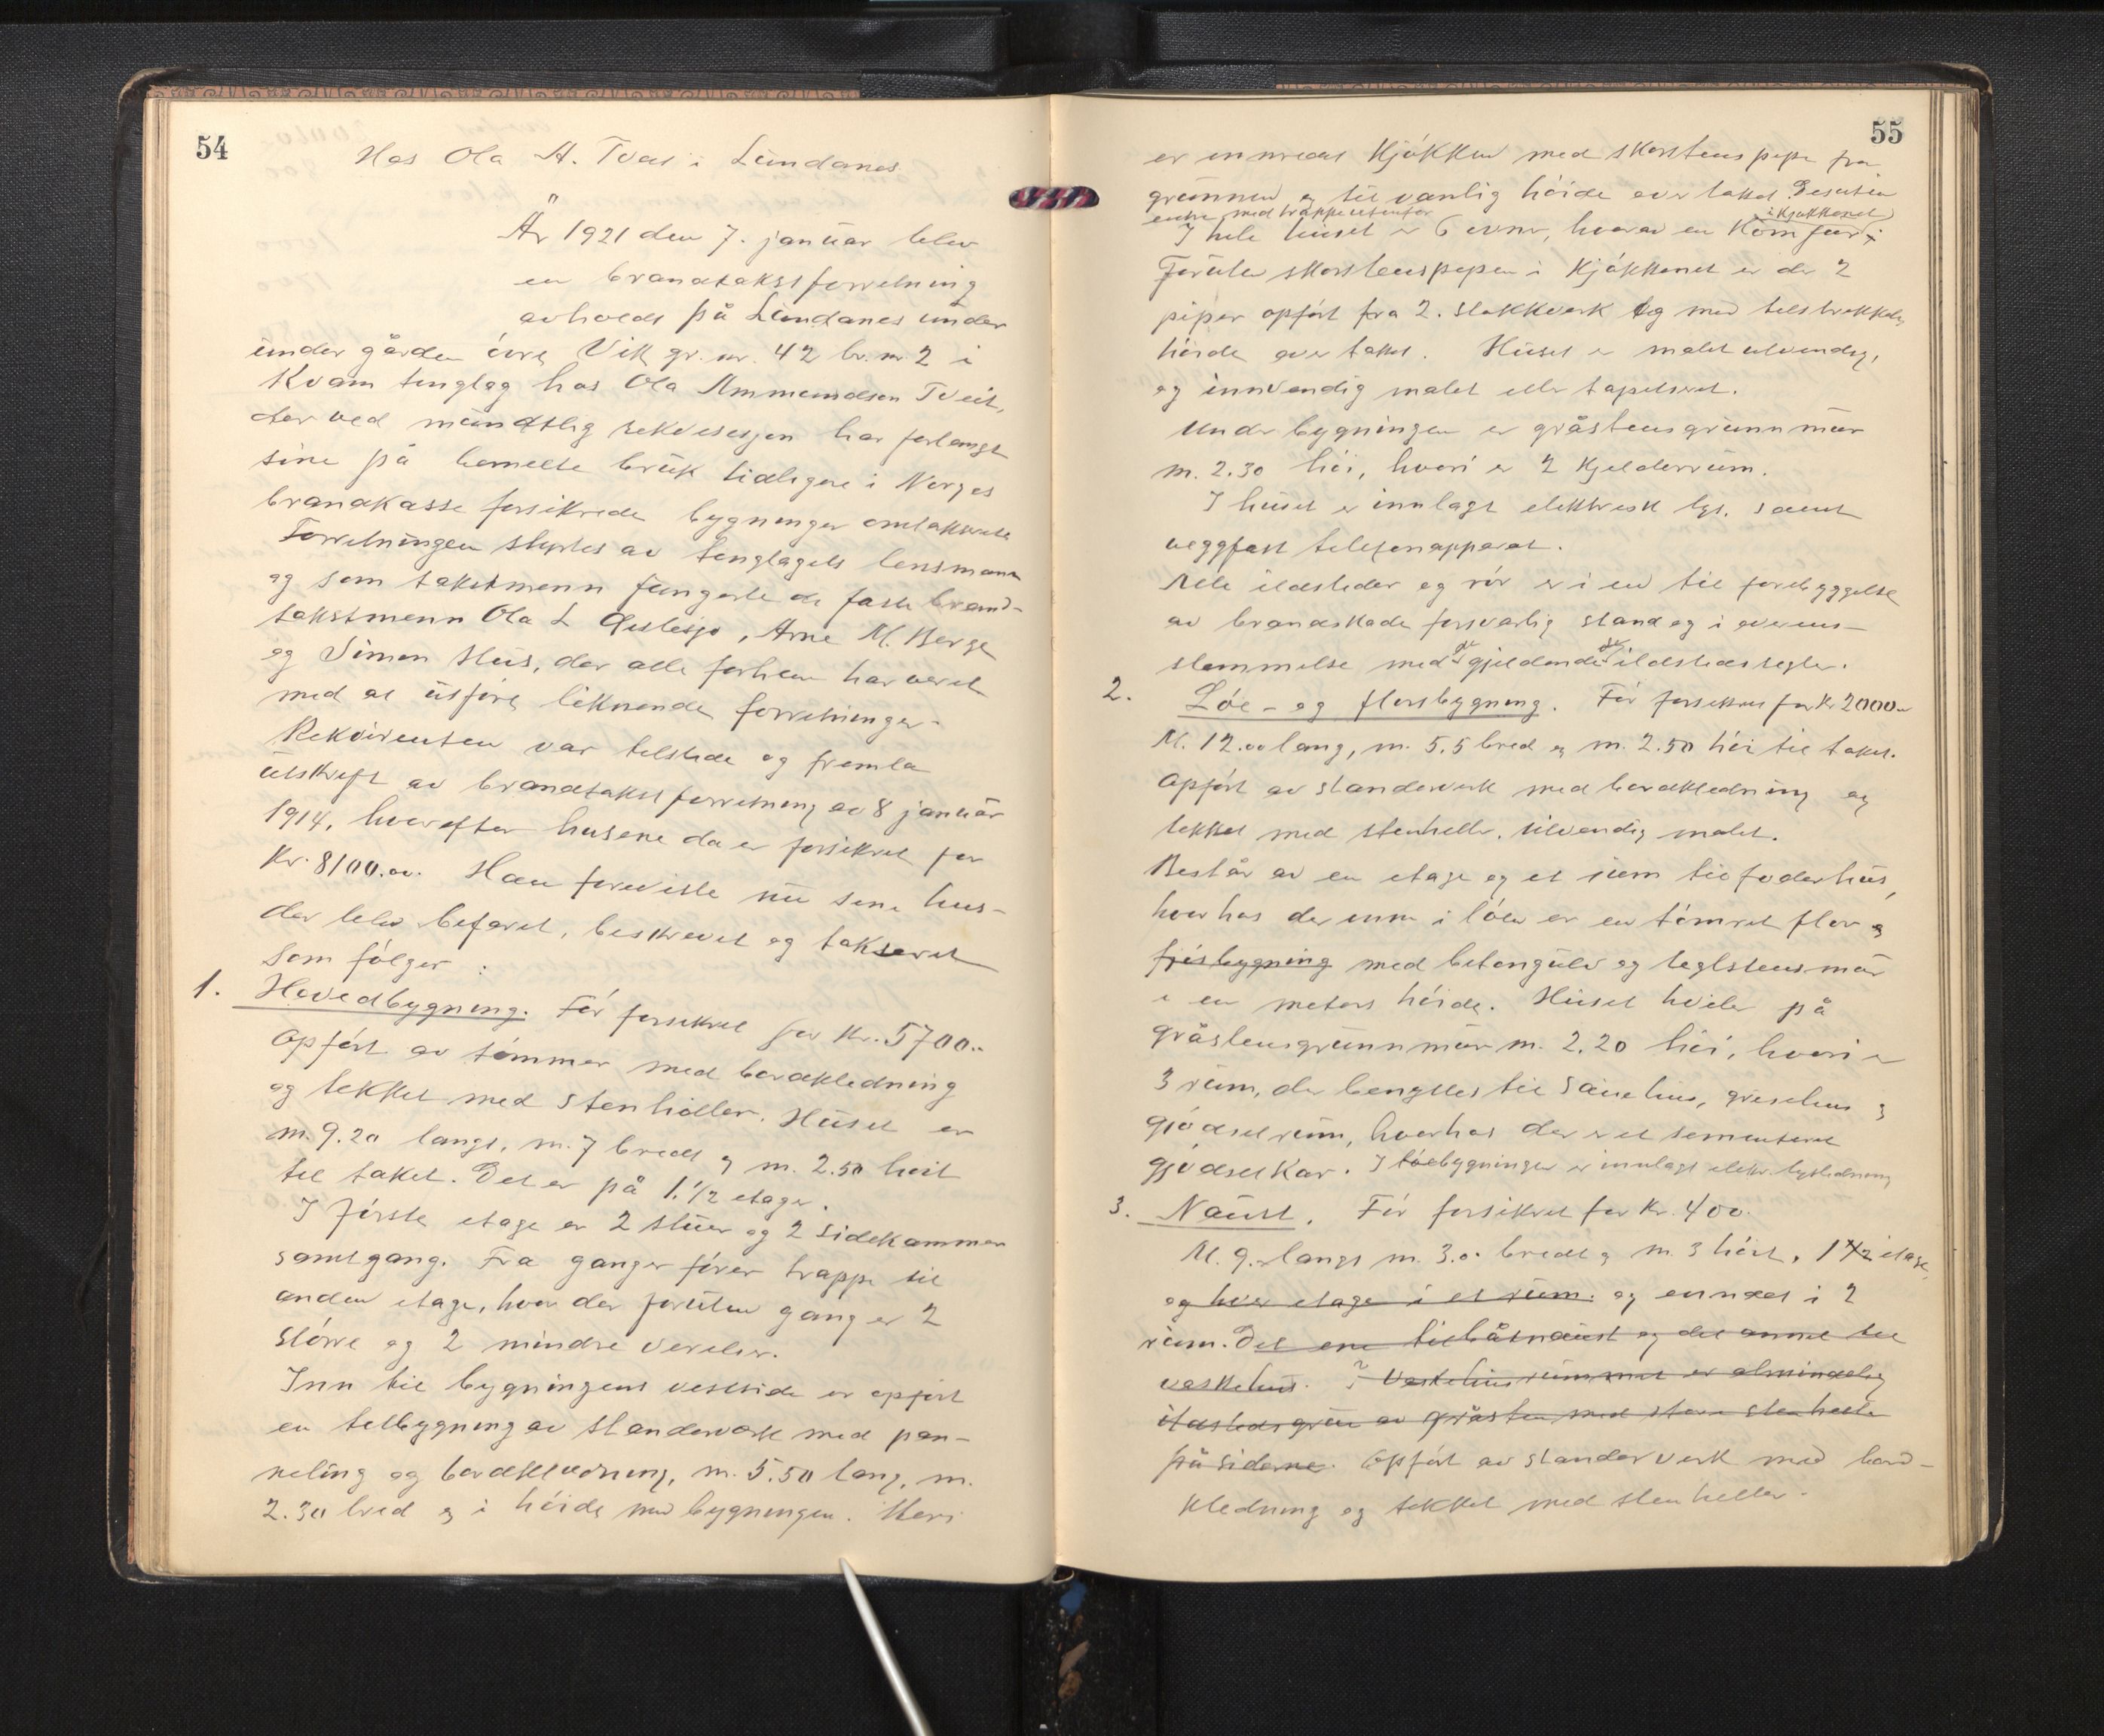 54
Hos Ola A. Tveit i Lundanes
År 1921 den 7. januar blev
en brandtakstforretning
avholdt på Lundanes under
under gården övre Vik gr. nr. 42 br. nr. 2 i
Kvam tinglag hos Ola Ammundsen Tveit,
der ved mundtlig rekvisisjon har forlangt
sine på bemelte bruk tidligere i Norges
brandkasse forsikrede bygninger omtakserte
Forretningen styrtes av tinglagets lensmann
og som takstmenn fungerte de faste brand-
takstmenn Ola L Östesjo, Arne M. Berge
og Simon Hus, der alle forhen har veret
med at utföre liknende forretninger.
Rekvirenten var tilstede og fremla
utskrift av brandtakst forretning av 8 januar
1914, hvorefter husene da er forsikret for
Kr. 8100.00. Han foreviste nu sine hus-
der blev befaret, beskrevet og taksert
som fölger:
1. Hovedbygning. För forsikret for Kr. 5700..
Opfört av tömmer med bordkledning
og tekket med stenheller. Huset er
m. 9.20 langt, m. 7 bredt og m. 2.50 höit
til taket. Det er på 1.1/2 etage.
I förste etage er 2 stuer og 2 sidekammer
samt gang. Fra gangen förer trappe til
anden etage, hvor der foruten gang er 2
större og 2 mindre verelser.
Inn til bygningens vestside er opfört
en tilbygning av standerverk med pan-
neling og bordkledning, m. 5.50 lang, m.
2.30 bred og i höide med bygningen. Heri
55
er innredet Kjökken med skorstens pipe fra
grunnen og til vanlig höide over taket. Desuten
entre med trappe utenfor
i Kjökkenet
I hele huset er 6 ovner, hvorav en Komfur i
Foruten skorstenspipen i Kjökkenet er der 2
piper opfört fra 2. stokkverk og med tilstrekkelig
höide over taket. Huset er malet utvendig,
og innvendig malet eller tapetseret.
Under bygningen er gråstens grunnmur
m. 2.30 höi, hvori er 2 Kjelderrum.
I huset er innlagt elektrisk lys, samt
veggfast telefonapparat.
Alle ildsteder og rör er i en til forebyggelse
av brandskade forsvarlig stand og i overens-
stemmelse med de gjeldende ildstedsregler.
2. Löe- og florsbygning. För forsikret for Kr 2000..
M. 12.00 lang, m. 5.5 bred og m. 2.50 höi til taket.
Opfört av standerverk med bordkledning og
tekket med stenheller, utvendig malet.
Består av en etage og et rum til foderhus,
hvorhos der inn i löen er en tömret flor og
fjösbygning med betongulv og teglstensmur
i en meters höide. Huset hviler på
gråstensgrunnmur m. 2.20 höi, hvori er
3 rum, der benyttes til Sauehus, grisehus og
gjödselrum, hvorhos der er et sementeret
gjödselkar. I löebygningen er innlagt elektr. lysledning
3. Naust. För forsikret for Kr. 400.
M. 9. langt m. 3.0. bredt og m. 3 höit. 1 1/2 etage,
og hver etage i et rum. og inndet i 2
rum. Det ene til båtnaust og det annet til
vaskehus. I vaskehusrummet er almindelig
ildstedsgrue av gråsten med store stenheller
på siderne. Opfört av standerverk med bord-
kledning og tekket med stenheller.